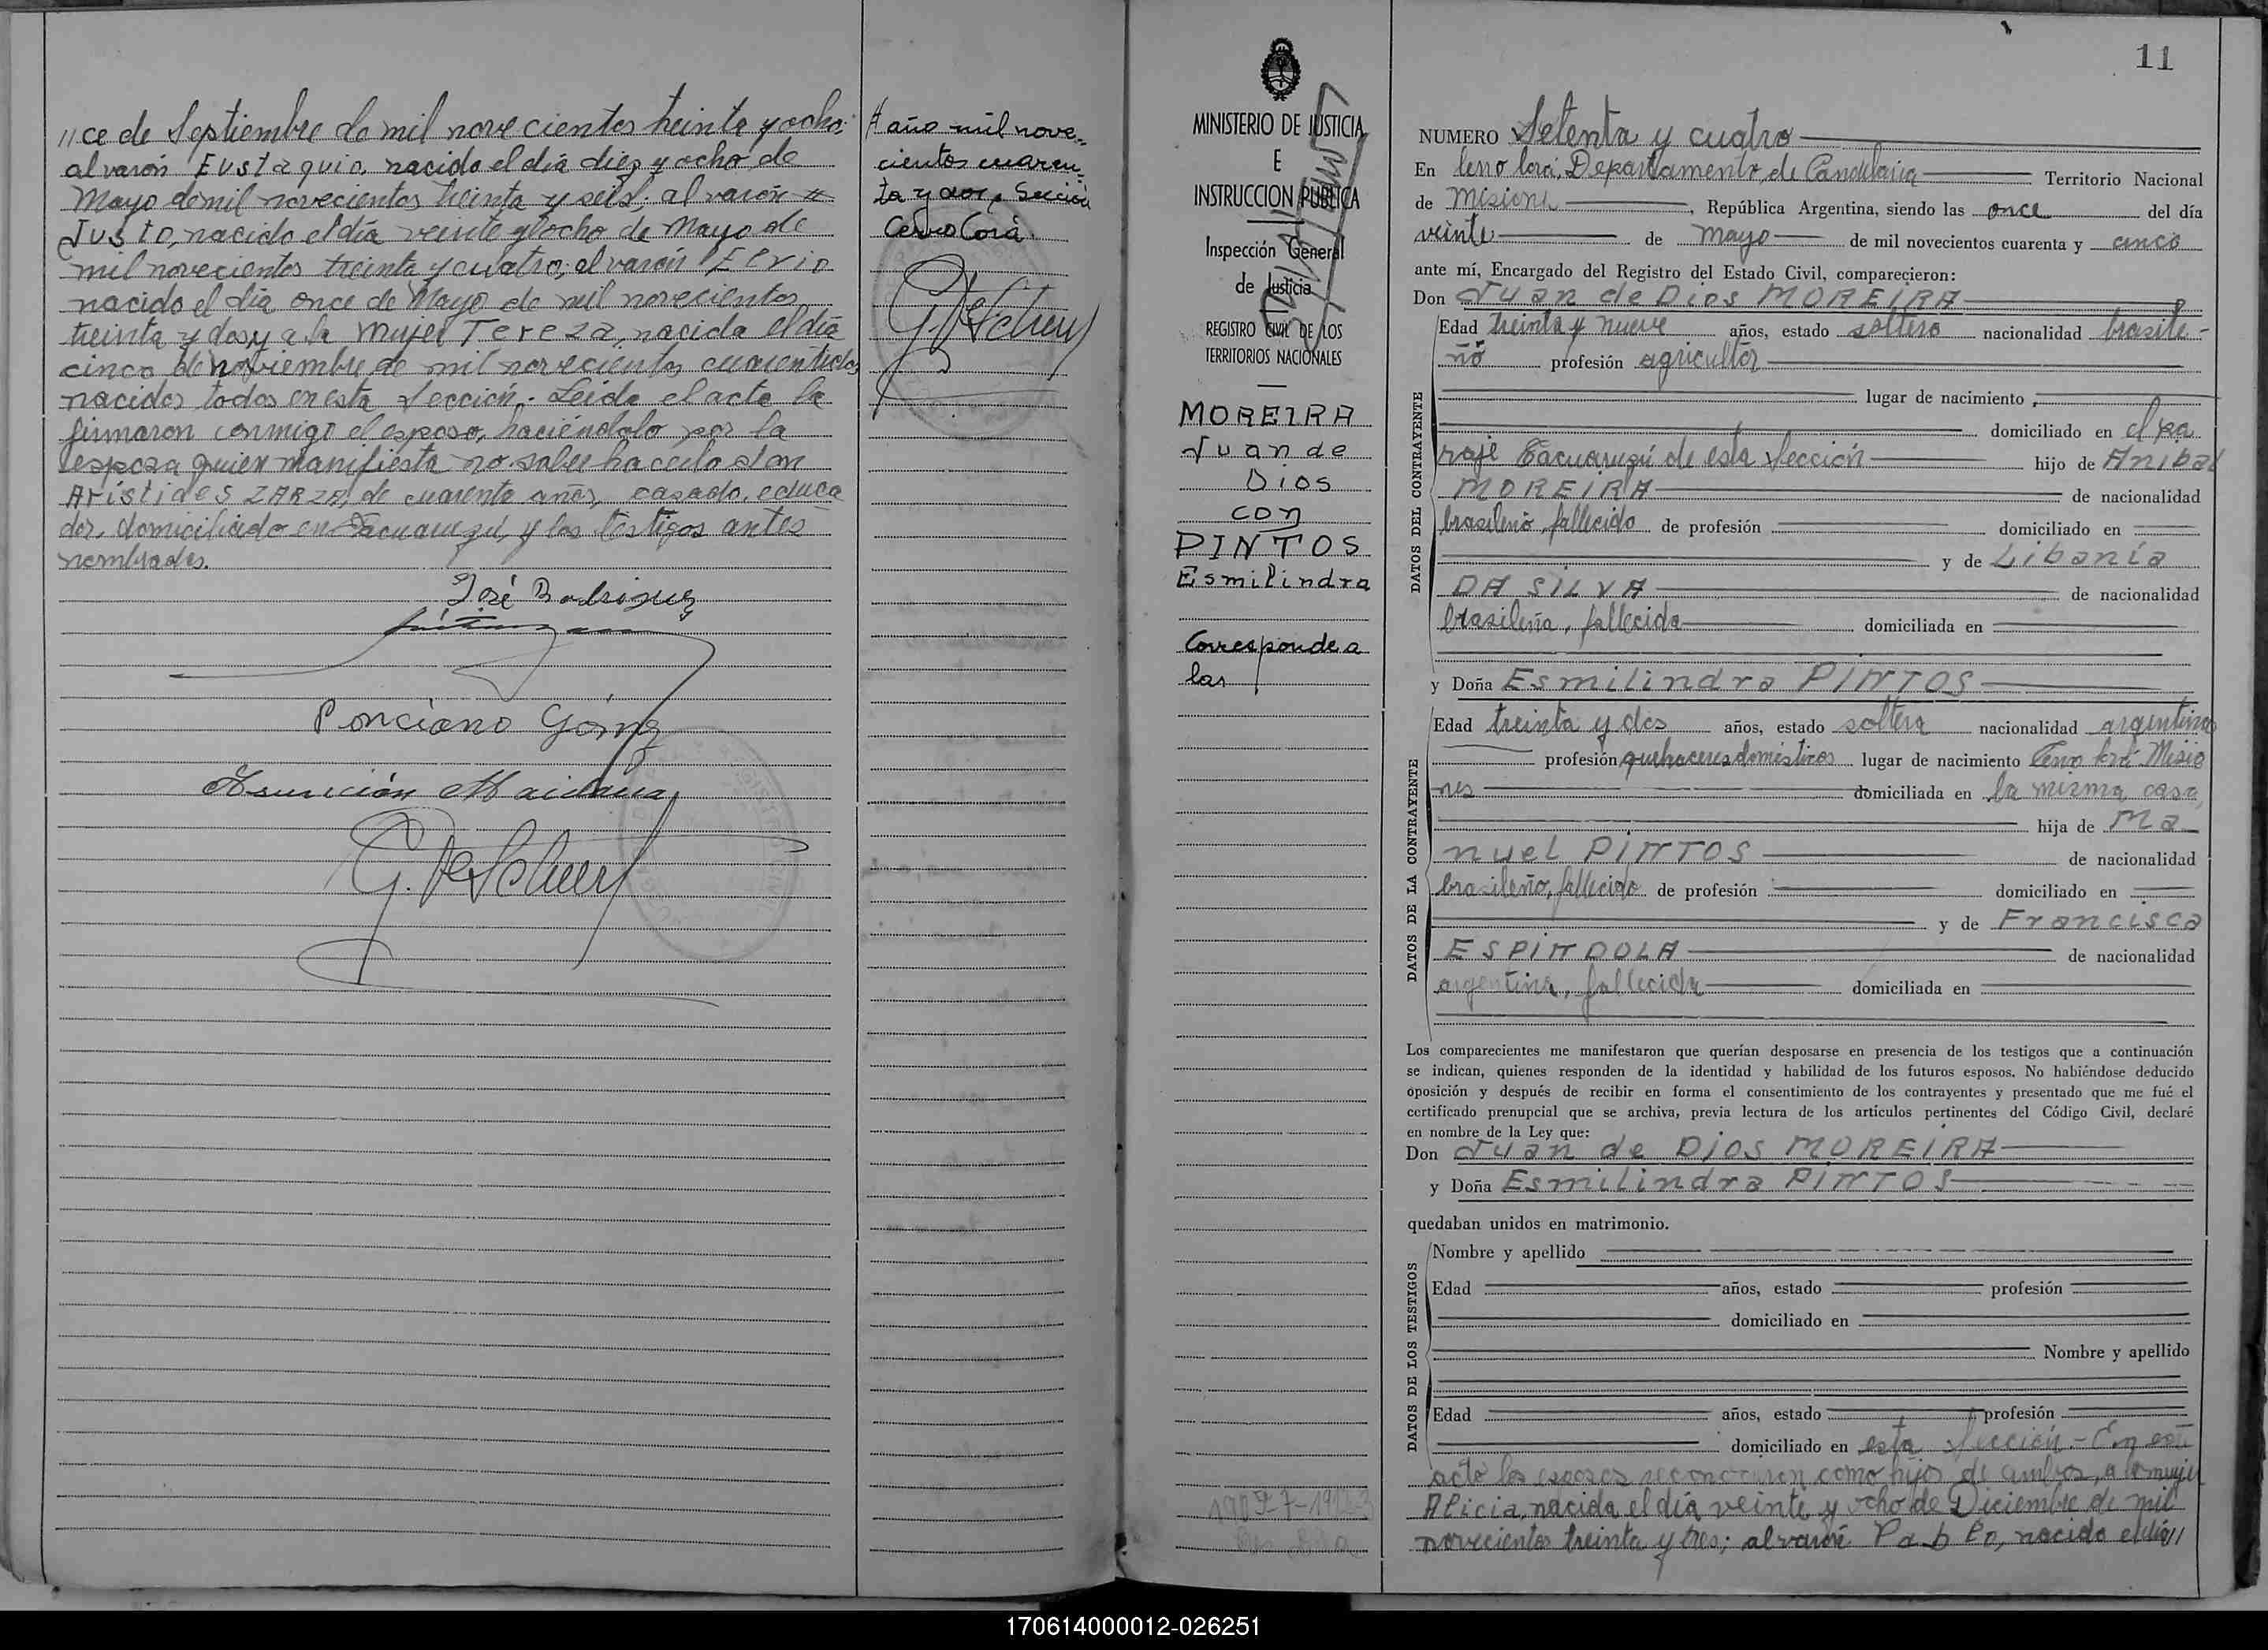 //ce de Septiembre de mil novecientos treinta y ocho;
al varón Eustaquio, nacido el día diez y ocho de
Mayo de mil novecientos treinta y seis; al varón
Justo, nacido el día veinte y ocho de Mayo de
mil novecientos treinta y cuatro; al varón Elvio
nacido el día once de Mayo de mil novecientos
treinta y dos y a la mujer Tereza, nacida el día
cinco de Noviembre de mil novecientos cuarentidos
nacidos todos en esta Sección.- Leída el acta la
firmaron conmigo el esposo, haciéndolo por la
esposa quien manifiesta no saber hacerlo don
Arístides ZARZA, de cuarenta años, casado, educa
dor, domiciliado en Tacuaruzú, y los testigos antes
nombrados.
José Rodriguez
Ponciano Gómez
Asunción Maidana
año mil nove-
cientos cuaren-
ta y dos, Sección
Cerro Corá.
MINISTERIO DE JUSTICIA
E
INSTRUCCION PUBLICA
Inspección General
de Justicia
REGISTRO CIVIL DE LOS
TERRITORIOS NACIONALES
MOREIRA
Juan de
Dios
con
PINTOS
Esmilindra
Corresponde a
las
11
NUMERO Setenta y cuatro
En Cerro Corá, Departamento de Candelaria Territorio Nacional
de Misiones, República Argentina, siendo las once del día
veinte de Mayo de mil novecientos cuarenta y cinco
ante mí, Encargado del Registro del Estado Civil, comparecieron:
Don Juan de Dios MOREIRA
DATOS DEL CONTRAYENTE
Edad treinta y nueve años, estado soltero nacionalidad brasile-
ño profesión agricultor
lugar de nacimiento
domiciliado en el pa
raje Tacuaruzú de esta Sección hijo de Anibal
MOREIRA de nacionalidad
brasileño, fallecido de profesión domiciliado en
y de Libania
DA SILVA de nacionalidad
brasileña, fallecida domiciliada en
y Doña Esmilindra PINTOS
DATOS DE LA CONTRAYENTE
Edad treinta y dos años, estado soltera nacionalidad argentina
profesión quehaceres domésticos lugar de nacimiento Cerro Corá Misio
nes domiciliada en la misma casa
hija de Ma
nuel PINTOS de nacionalidad
brasileño, fallecido de profesión domiciliado en
y de Francisca
ESPINDOLA de nacionalidad
argentina, fallecida domiciliada en
Los comparecientes me manifestaron que querían desposarse en presencia de los testigos que a continuación
se indican, quienes responden de la identidad y habilidad de los futuros esposos. No habiéndose deducido
oposición y después de recibir en forma el consentimiento de los contrayentes y presentado que me fué el
certificado prenupcial que se archiva, previa lectura de los artículos pertinentes del Código Civil, declaré
en nombre de la Ley que:
Don Juan de Dios MOREIRA
y Doña Esmilindra PINTOS
quedaban unidos en matrimonio.
DATOS DE LOS TESTIGOS
Nombre y apellido
Edad años, estado profesión
domiciliado en
Nombre y apellido
Edad años, estado profesión
domiciliado en esta Sección.- En este
acto los esposos reconocieron como hijos de ambos, a la mujer
Alicia, nacida el día veinte y ocho de Diciembre de mil
novecientos treinta y tres; al varón Pablo, nacido el día//
170614000012-026251